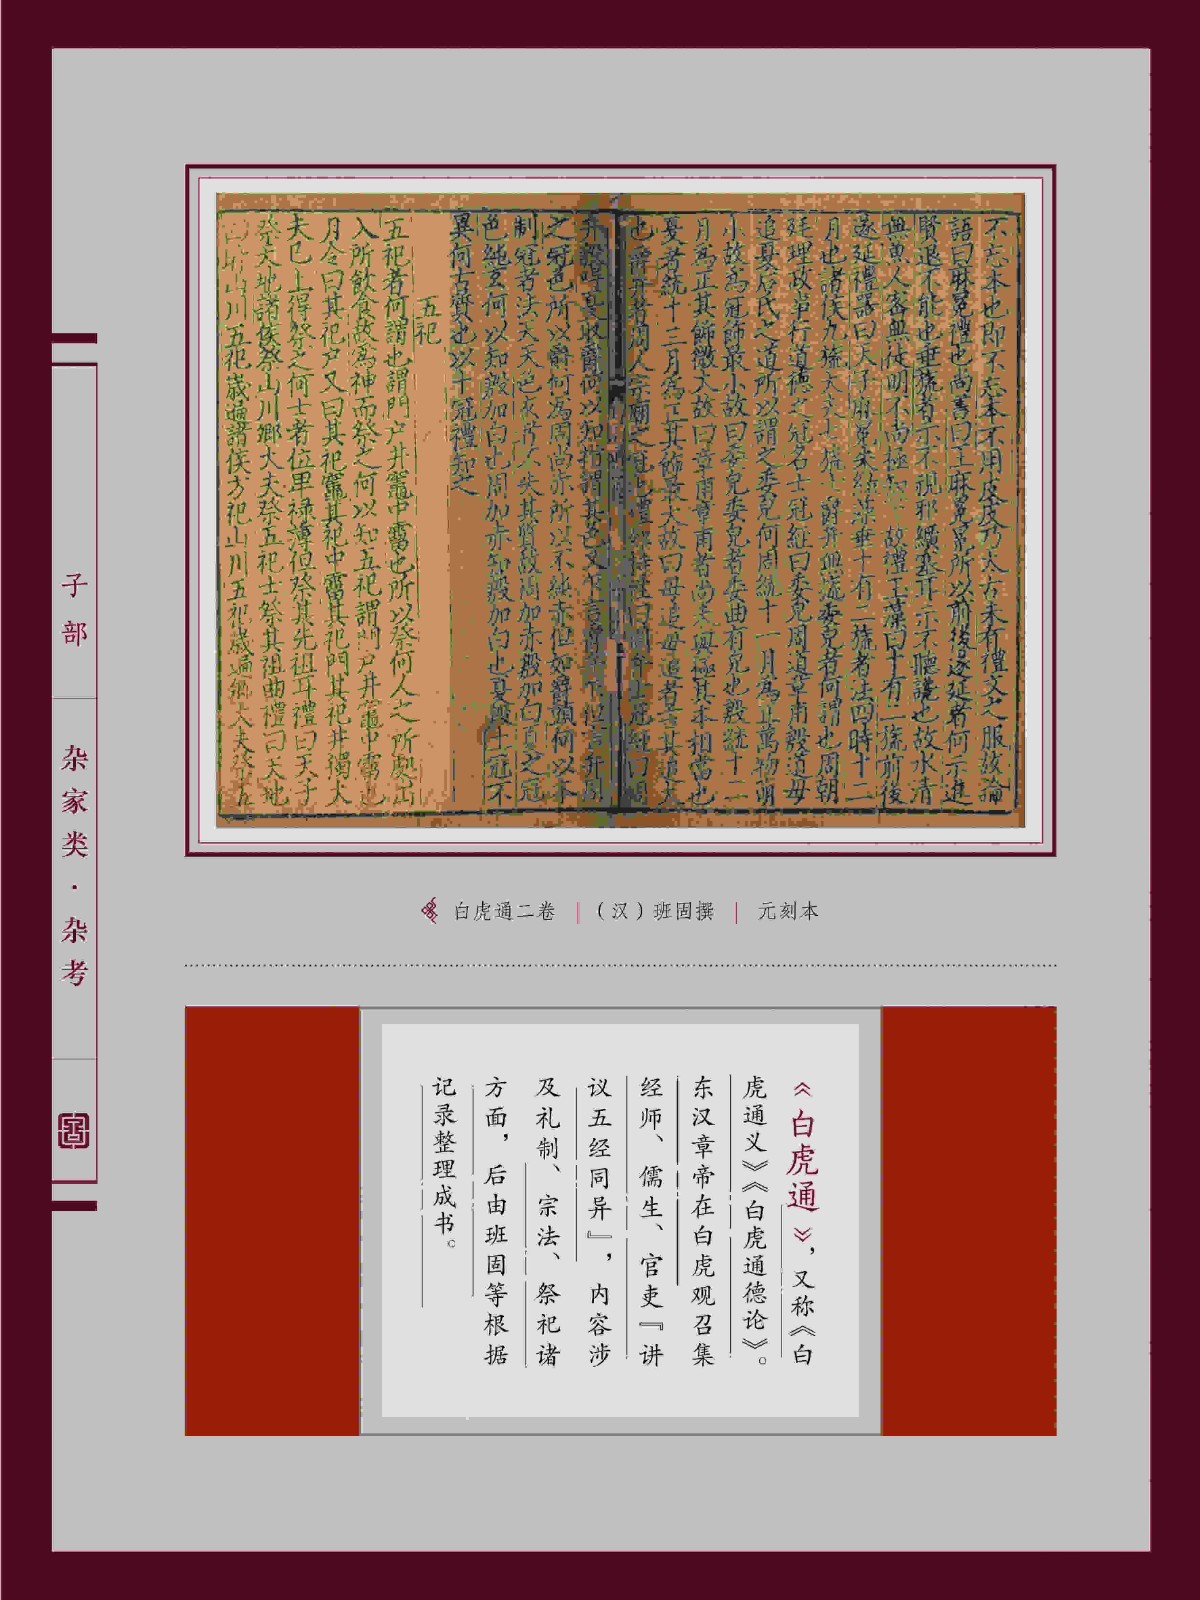 不忘本也即不忘本不用皮皮乃太古未有禮文之服故論
語曰麻冕禮也尚書曰王麻冕冕所以前後邃延者何示進
賢退不能也垂旒者示不視邪纊塞耳示不聽讒也故水清
無魚人察無徒明不尚極知故禮玉藻曰十有二旒前後
邃延禮器曰天子麻冕朱綠藻垂十有二旒者法四時十二
月也諸侯九旒大夫七旒士爵弁無旒委皃者何謂也周朝
廷理政事行道德之冠名士冠經曰委皃周道章甫殷道毋
追夏后氏之道所以謂之委皃何周統十一月為正萬物萌
小故為冠飾最小故曰委皃委皃者委曲有皃也殷統十二
月為正其飾微大故曰章甫章甫者尚未與極其本相當也
夏者統十三月為正其飾最大故曰毋追毋追者言其追大
制冠者法天天色
色純玄何以知殷加白也周加赤知殷加白也夏殷士冠不
異何古質也以士冠禮知之
五祀
五祀者何謂也謂門戶井竈中霤也所以祭何人之所處出
入所飲食故為神而祭之何以知五祀謂門戶井竈中霤也
月令曰其祀戶又曰其祀竈其祀中霤其祀門其祀井獨大
夫已上得祭之何士者位卑祿薄但祭其先祖耳禮曰天子
祭天地諸侯祭山川鄉大夫祭五祀士祭其祖曲禮曰天地
山川五祀歲遍諸侯方祀山川五祀歲遍卿大夫祭五
子部
杂家类·杂考
白虎通二卷 |（汉）班固撰 | 元刻本
《白虎通》，又称《白
虎通义》《白虎通德论》。
东汉章帝在白虎观召集
经师、儒生、官吏『讲
议五经同异』，内容涉
及礼制、宗法、祭祀诸
方面，后由班固等根据
记录整理成书。